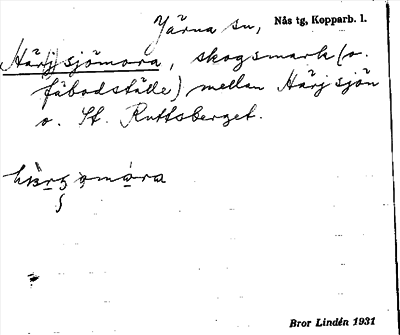 Järna sn, Nås tg, Kopparb. l.
Härjsjömora, skogsmark (o.
fäbodställe) mellan Härjsjön
o. St. Ruttsberget.
Bror Lindén 1931